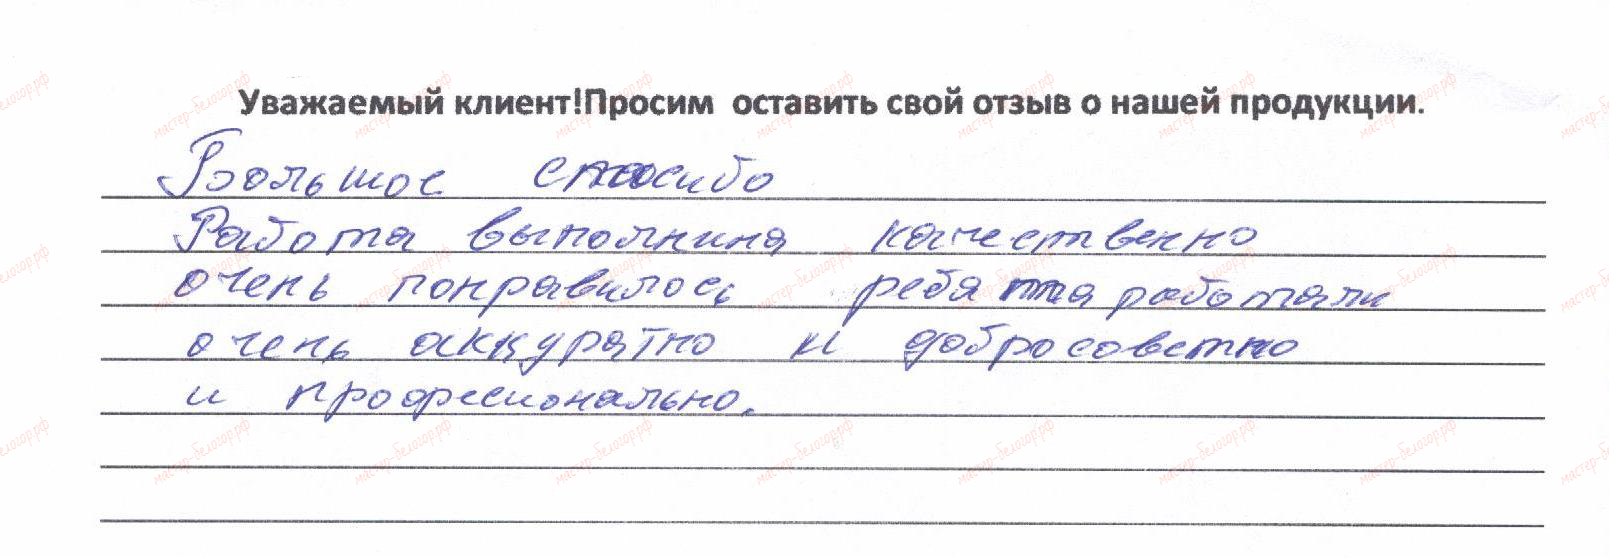 Уважаемый клиент!Просим оставить свой отзыв о нашей продукции.
Большое спасибо
Работа выполнина качественно
очень понравилось ребята работали
очень аккуратно и добросоветно
и професионально.
мастер-белогор.рф